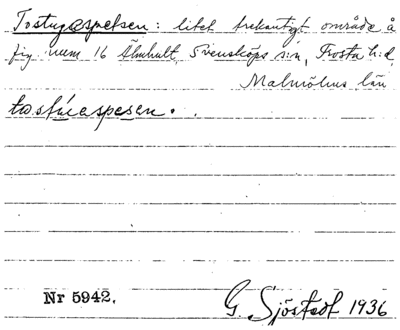 Tostugæspetsen: litet trekantigt område å
fig. num 16 Älmhult, Svensköps s:n, Frosta h:d,
Malmöhus län
tostúaspesen.
Nr 5942.
G. Sjöstedt 1936